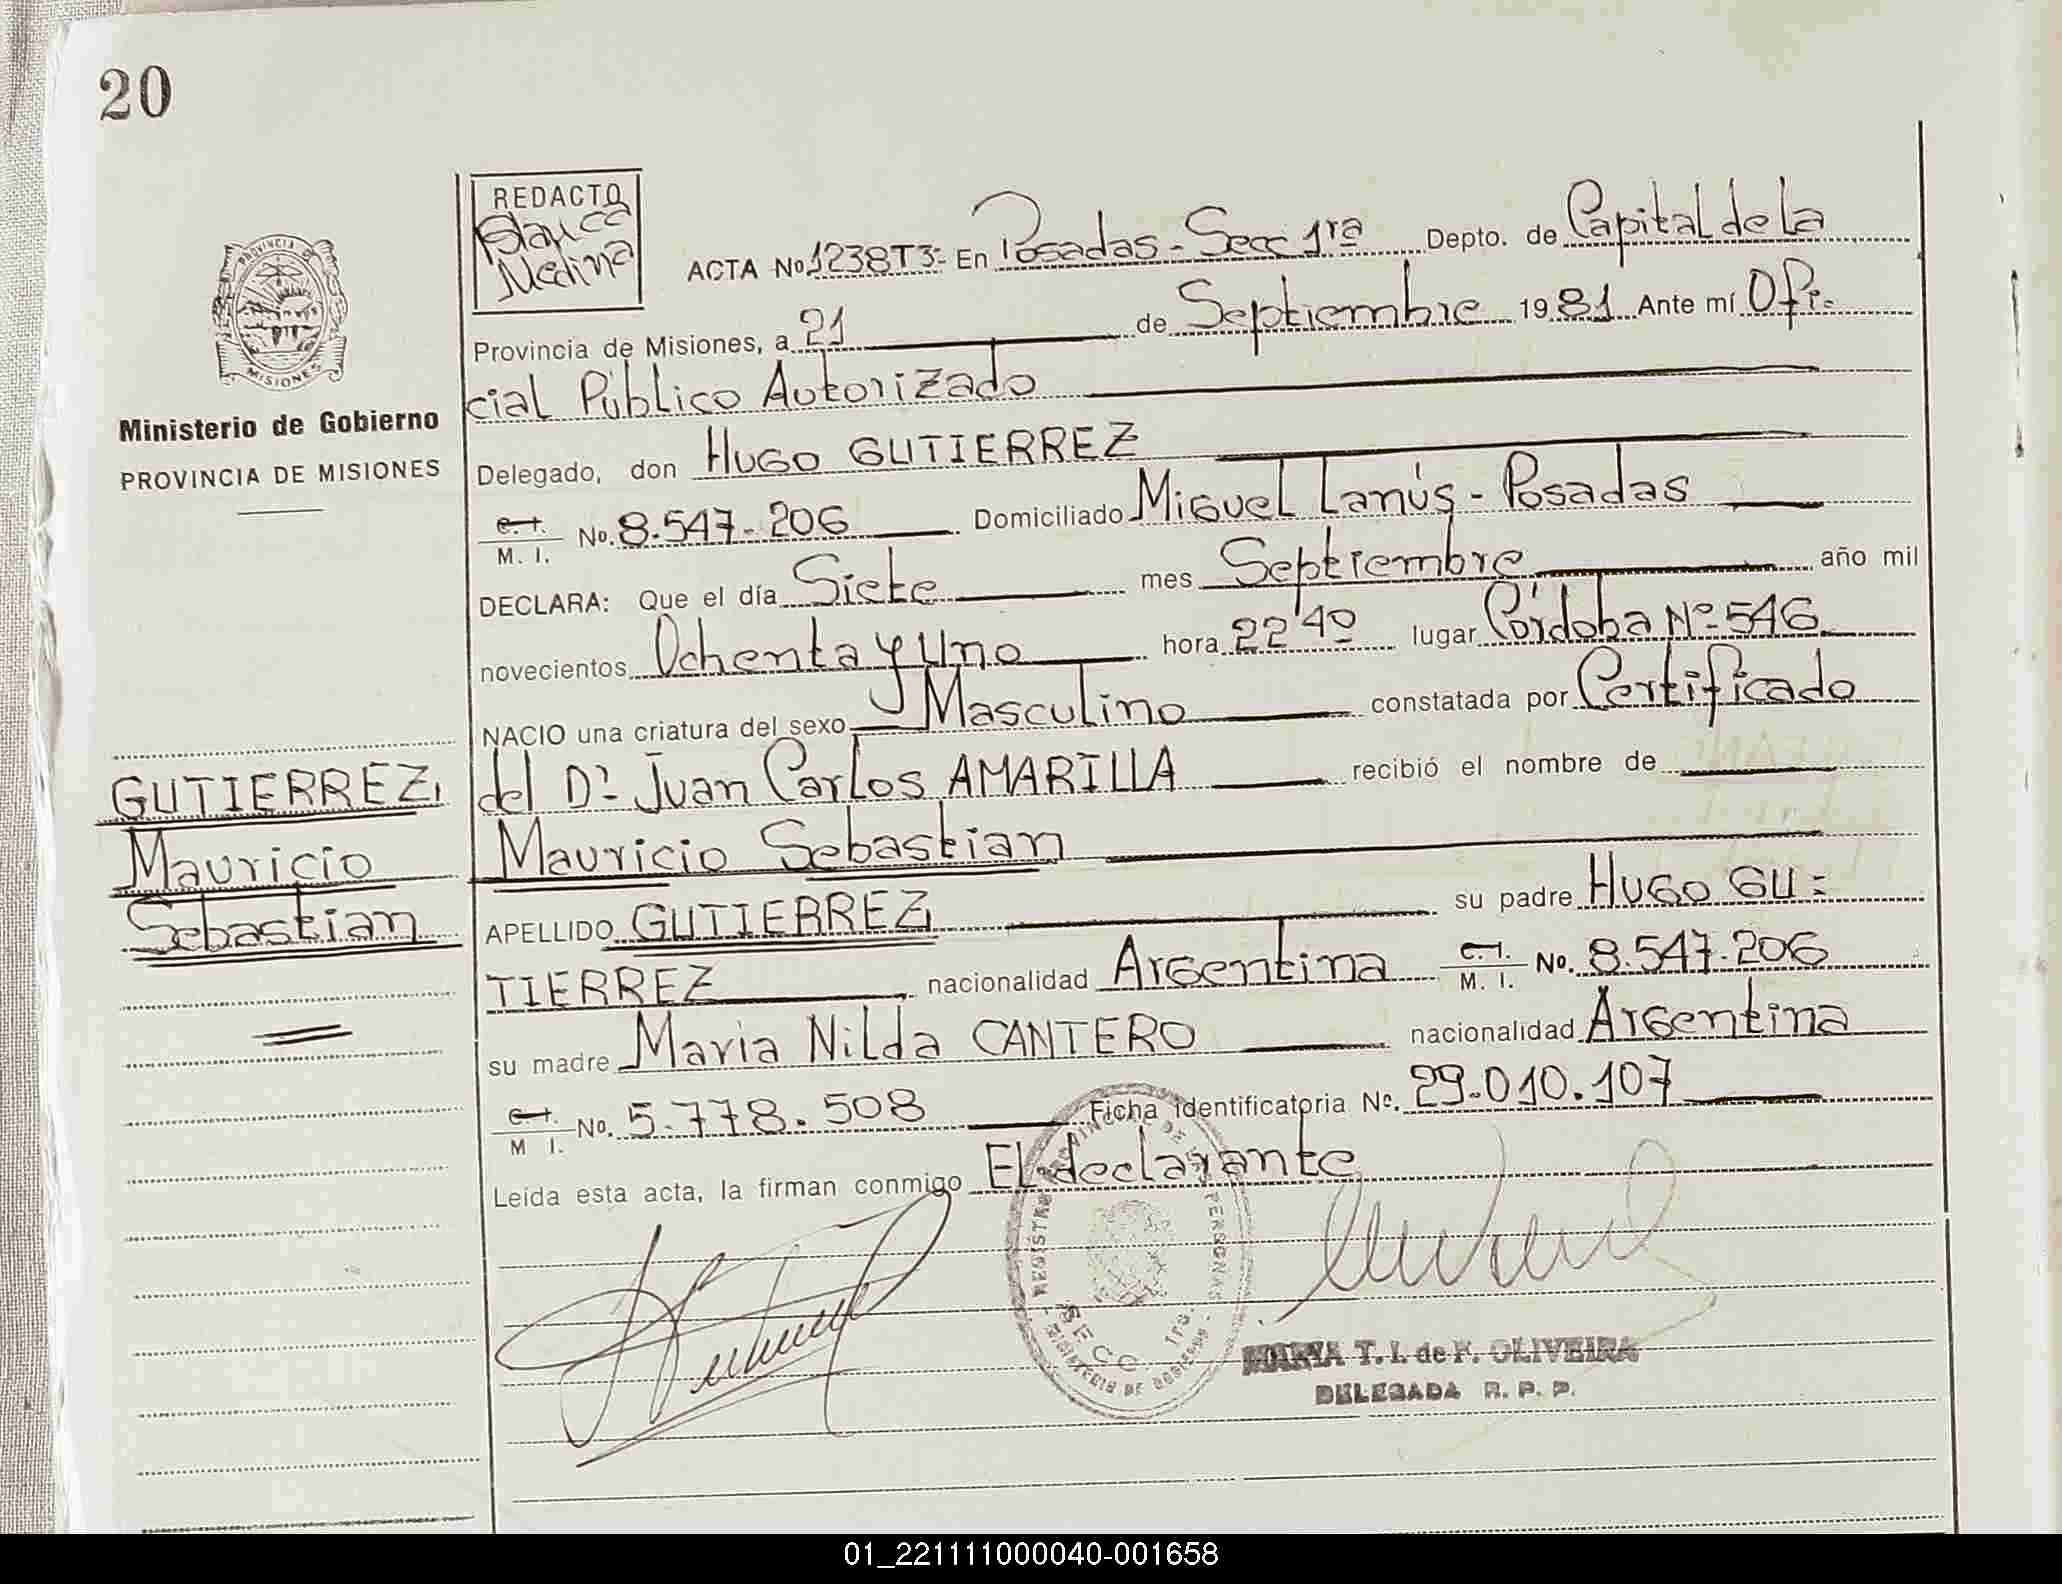 20
PROVINCIA DE
MISIONES
Ministerio de Gobierno
PROVINCIA DE MISIONES
GUTIERREZ,
Mauricio
Sebastian
REDACTO
Blanca
Medina
ACTA No 1238T3- En Posadas - Secc 1ra Depto. de Capital de la
Provincia de Misiones, a 21 de Septiembre 1981 Ante mí Ofi-
cial Público Autorizado
Delegado, don HUGO GUTIERREZ
C. I. / M. I. No. 8.547.206 Domiciliado Miguel Lanús - Posadas
DECLARA: Que el día Siete mes Septiembre año mil
novecientos Ochenta y Uno hora 22'40 lugar Córdoba Nº 546
NACIO una criatura del sexo Masculino constatada por Certificado
del Dr Juan Carlos AMARILLA recibió el nombre de
Mauricio Sebastian
APELLIDO GUTIERREZ, su padre HUGO GU=
TIERREZ nacionalidad Argentina C. I. / M. I. No. 8.547.206
su madre Maria Nilda CANTERO nacionalidad Argentina
C. I. / M I. No. 5.778.508 Ficha identificatoria No. 29.010.107
Leída esta acta, la firman conmigo El declarante
SECC. 1ra.
MARIA T. I. de F. OLIVEIRA
DELEGADA R. P. P.
01_221111000040-001658